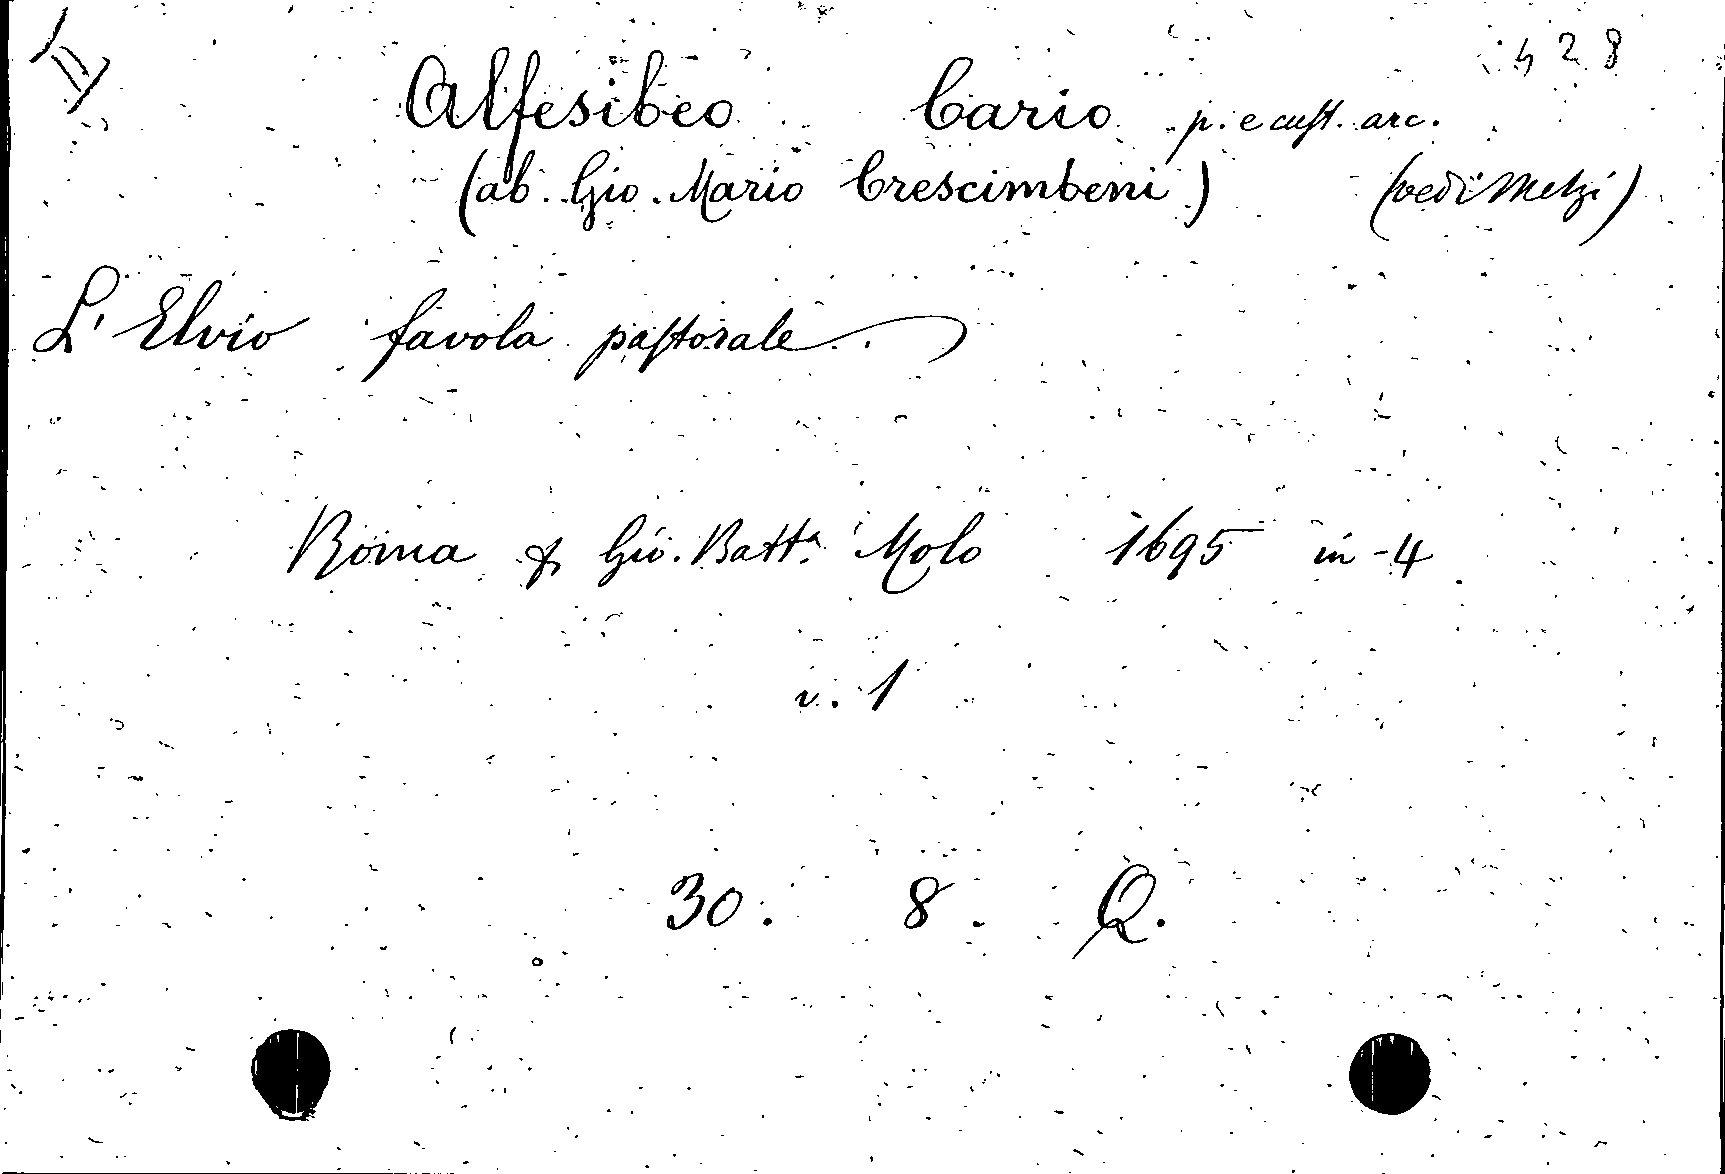 II
428
Alfesibeo Cario p. e cust. arc.
(ab. Gio. Mario Crescimbeni) (vedi Melzi)
L'Elvio favola pastorale.
Roma p. Gio. Batt.a Molo 1695 in-4
v. 1
30. 8. Q.